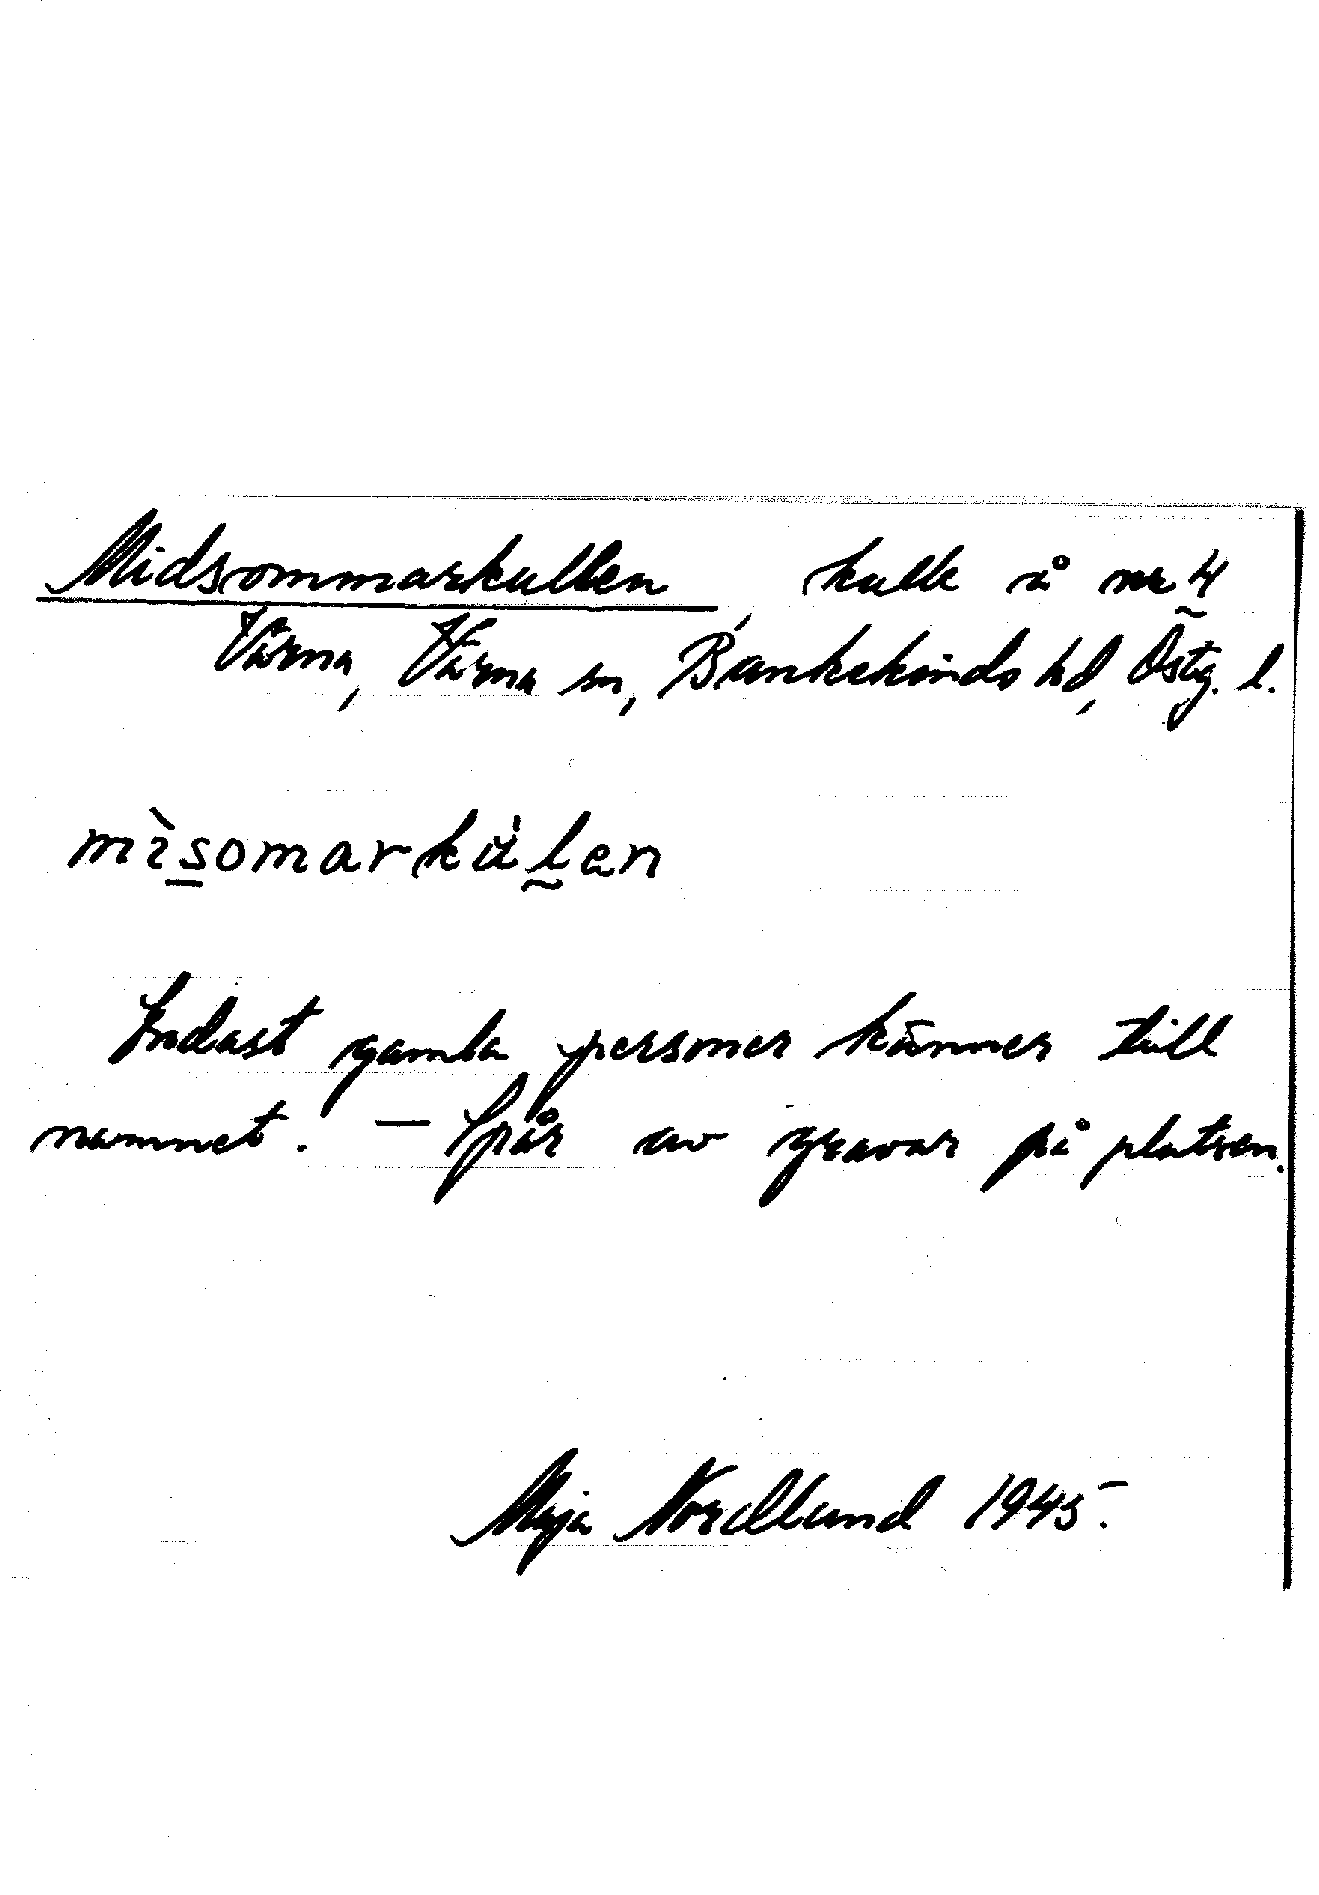 Midsommarkullen, kulle å nr 4
Värna, Värna sn, Bankekinds hd, Östg. l.
mìsomarkúlen
Endast gamla personer känner till
namnet. — Spår av gravar på platsen.
Maja Nordlund 1945.